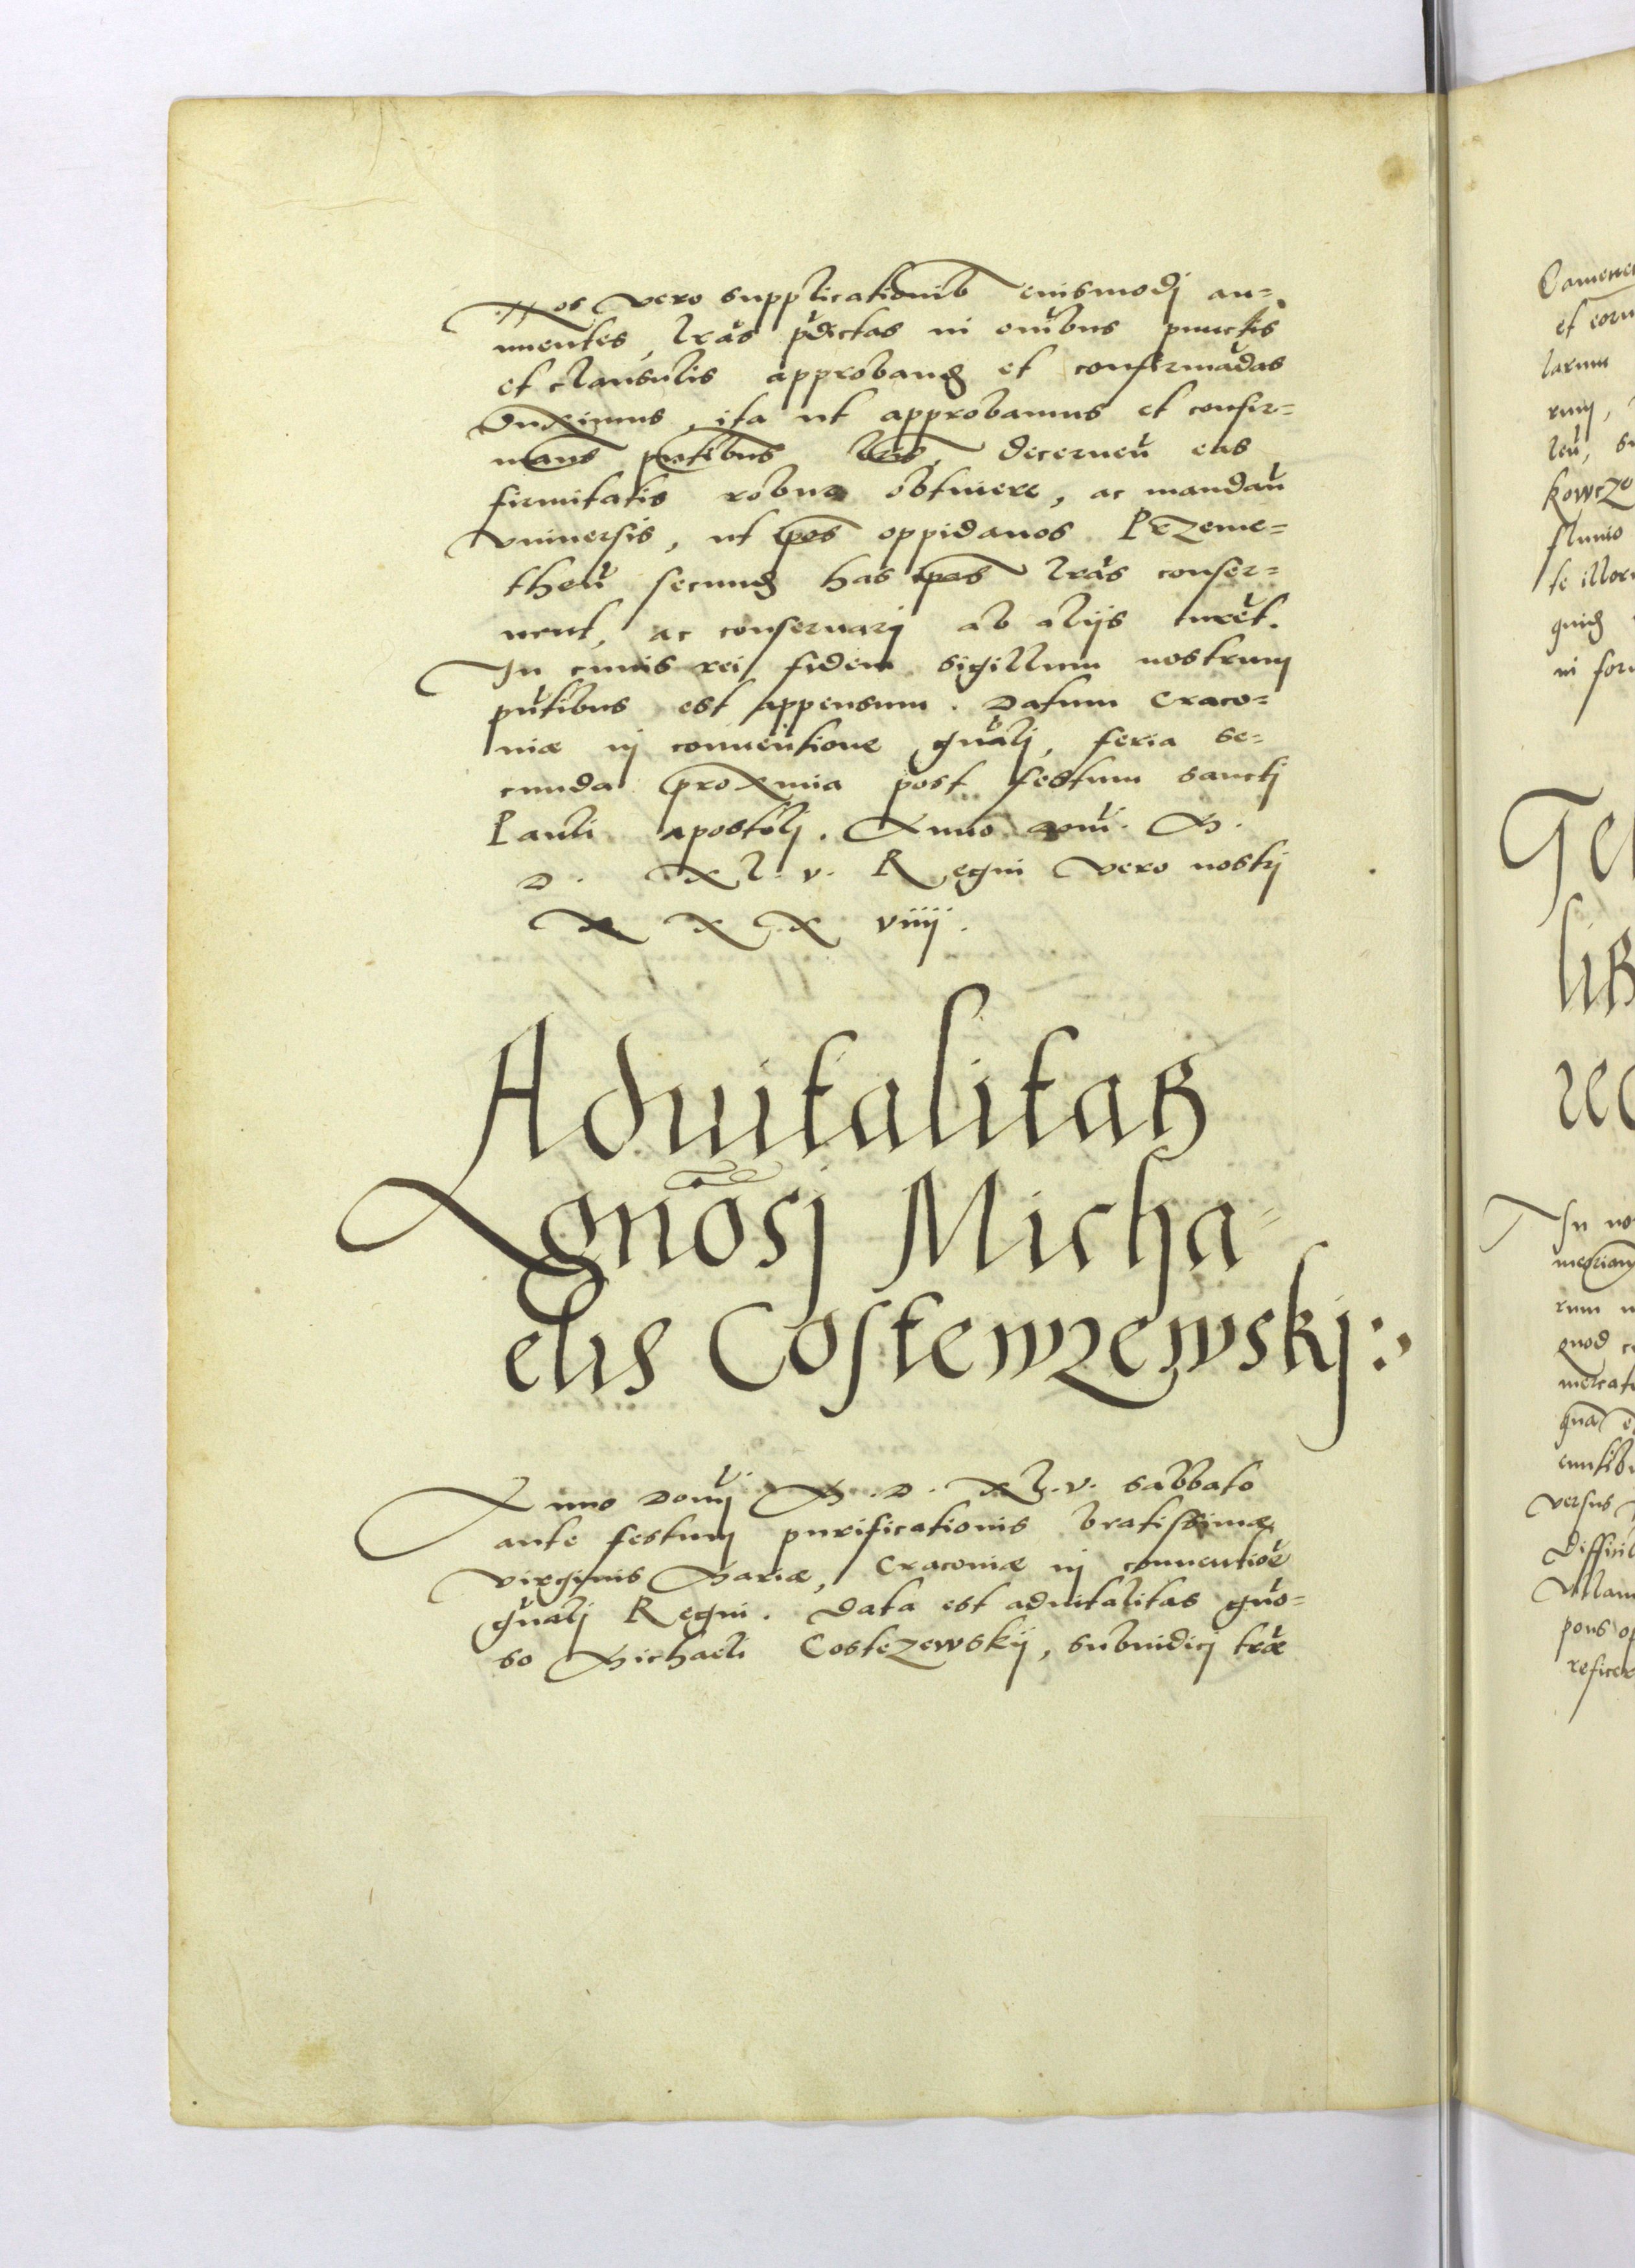 Nos vero supplicationib eiusmodj an-
nuentes, lras pdictas in omibus punctis
et clausulis approband et confirmadas
duximus, ita ut approbamus et confir-
mams pntibus lris, decerneu eas
firmitatis robur obtinere, ac mandau
vniuersis, ut ipos oppidanos Przeme-
theu secund has ipas lras conser-
uent, ac conseruarj ab alijs curet.
In cuius rei fidem sigillum nostrum
pntibus est appensum. Datum Craco-
niæ in conuentione gnalj, feria se-
cunda proxima post festum sanctj
Pauli apostolj. Anno domi. M.
D. XL. v. Regni vero nostrj
XXXviiij.
Aduitalitas
gnosj Micha-
elis Costewzewskj:
Anno domj M.D.XL.v. sabbato
ante festum purificationis beatissimæ
virginis Mariæ, Craconiæ in conuentioe
gnalj Regni. data est aduitalitas gno-
so Michaeli Costezewskij, subiudicj træ
Camene
et eoru
larum
leu, su
kowcze
fluuio
te illor
quid
in for
Tel
lis
rec
In no
memoriam
rum
quod
mercat
qua
euntib
versus
difficil
Vllam
pons op
reficer